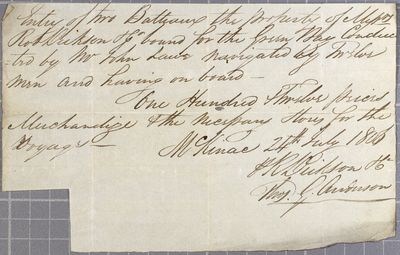 Entry of two Batteaux the property of Messrs
Robt Dickson & Co bound for the Green Bay Conduc
-ted by Mr John Lawe navigated by Twelve
men and having on board —
One Hundred & Twelve pieces
Merchandize & the necessary stores for the
Voyage —
McKinac 24th July 1810
Dickson & Co